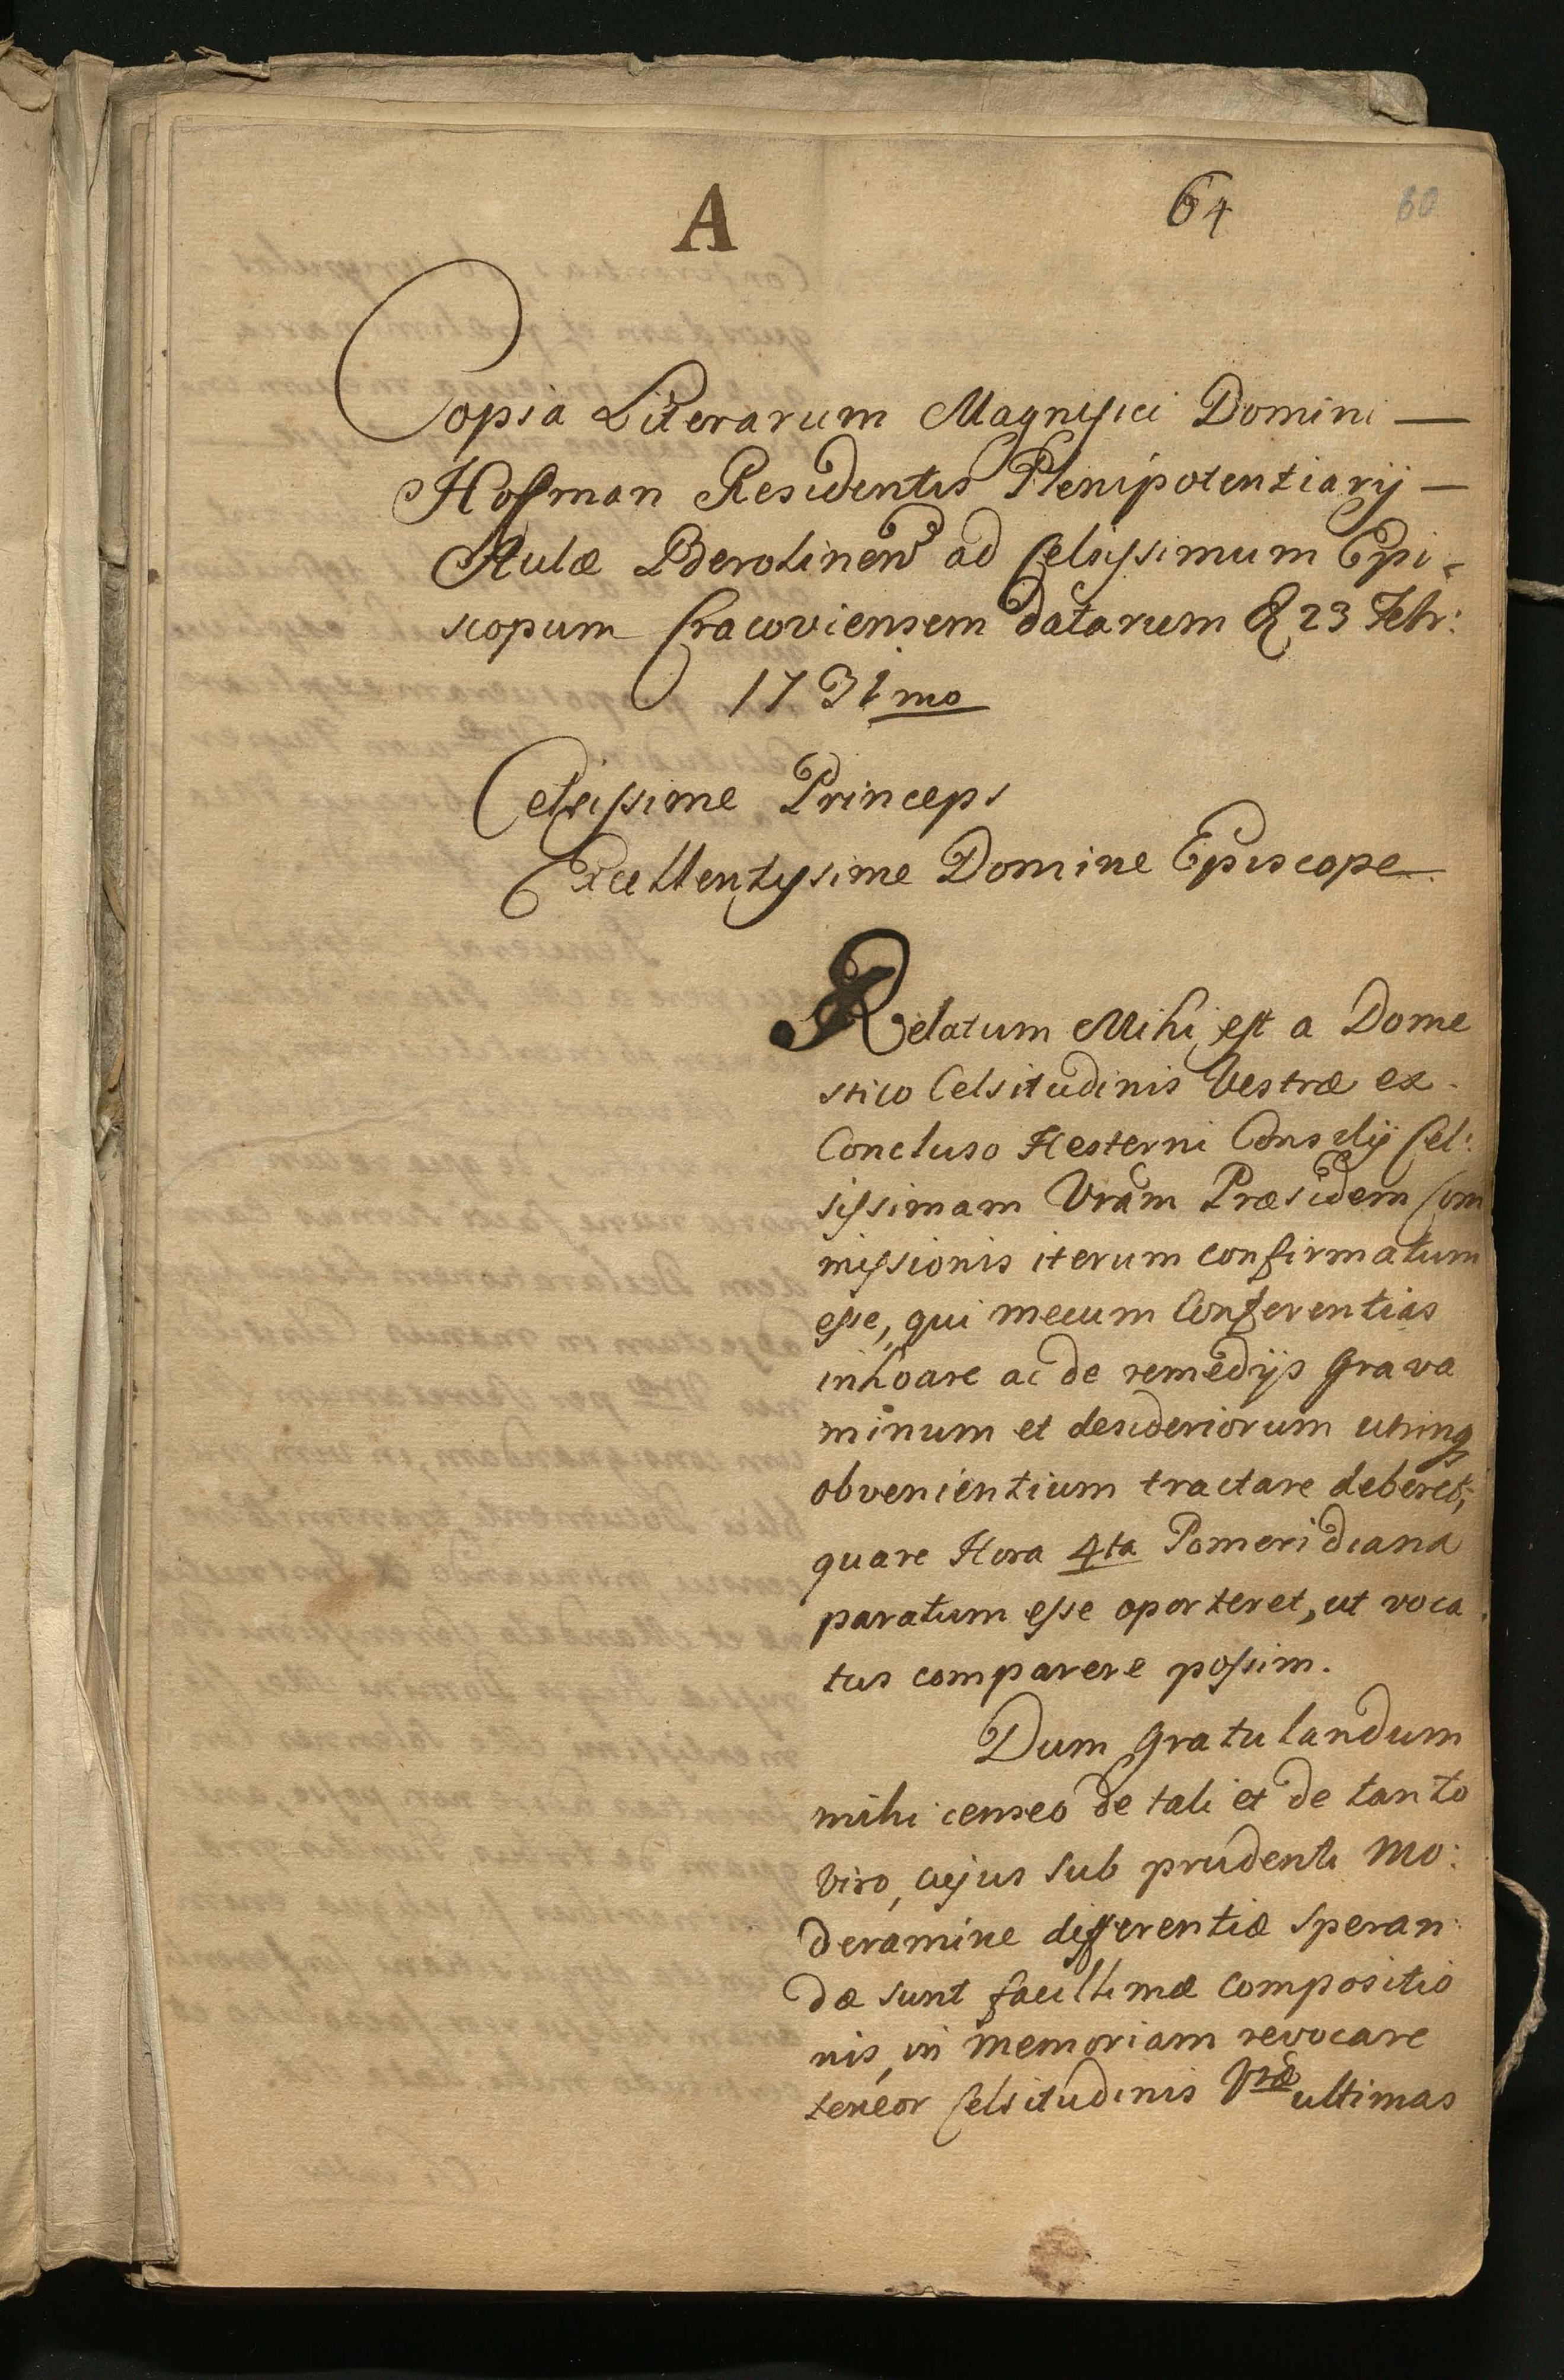 A
64
60
Copia Literarum Magnifici Domini —
Hoffman Residentis Plenipotentiarij —
Aulæ Berolinens ad Celsissimum Epi-
scopum Cracoviensem datarum & 23 Febr:
1731mo
Celsissime Princeps
Excellentissime Domine Episcope
Relatum Mihi est a Dome
stico Celsitudinis Vestræ ex
Concluso Hesterni Consilij Cel:
sissimam Vram Præsidem Com
missionis iterum confirmatum
esse, qui mecum Conferentias
inhoare ac de remedijs Grava
minum et desideriorum utrinq
obvenientium tractare deberet,
quare Hora 4ta Pomeridiana
paratum esse oporteret, ut voca
tus comparere possim.
Dum Gratulandum
mihi censeo de tali et de tanto
Viro, cujus sub prudenti Mo:
deramine differentiæ speran:
dæ sunt facillimæ compositio
nis, in memoriam revocare
teneor Celsitudinis Vræ ultimas